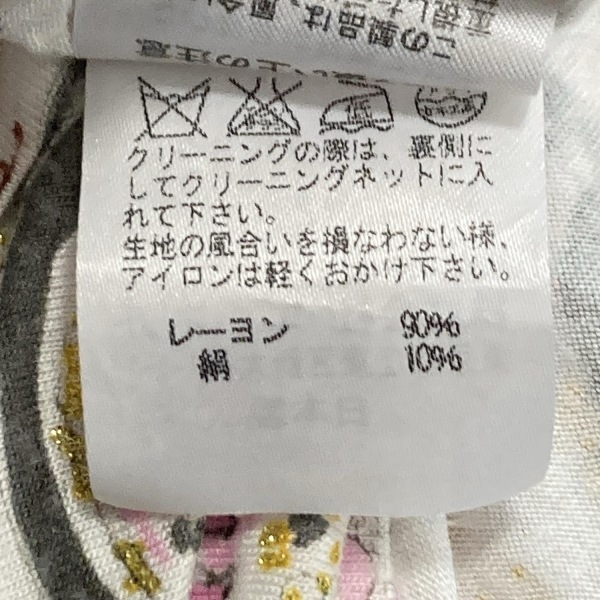 この製品は、風合い
クリーニングの際は、裏側に
してクリーニングネットに入
れて下さい。
生地の風合いを損なわない様、
アイロンは軽くおかけ下さい。
レーヨン 90%
絹 10%